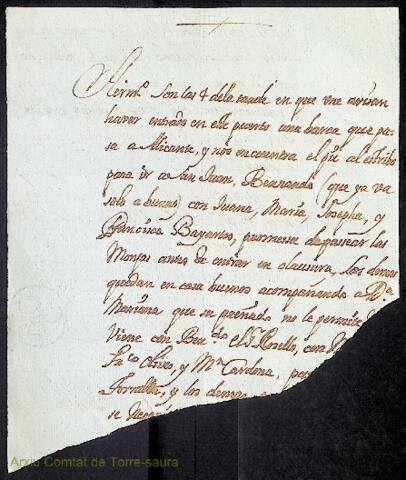 Herm.º son las 4 dela tarde en que me avisan
haver entrado en este puerto una barca que pa-
sa a Alicante, y nos encuentra el pie al estribo
para ir a San Juan, Bernardo (que ya va
solo a bueno) con Juana, Maria, Josepha, y
Francisca Bayartes, para pasear las
Monjas antes de entrar en clausura, los demas
quedan en casa buenos acompañando a D.ª
Mariana que su preñado no le permite
Viene con el S.r Rosello, con
Fr.co Olives, y M.ª Cardona,
Torralba, y los demas
se
Arxiu Comtat de Torre-saura